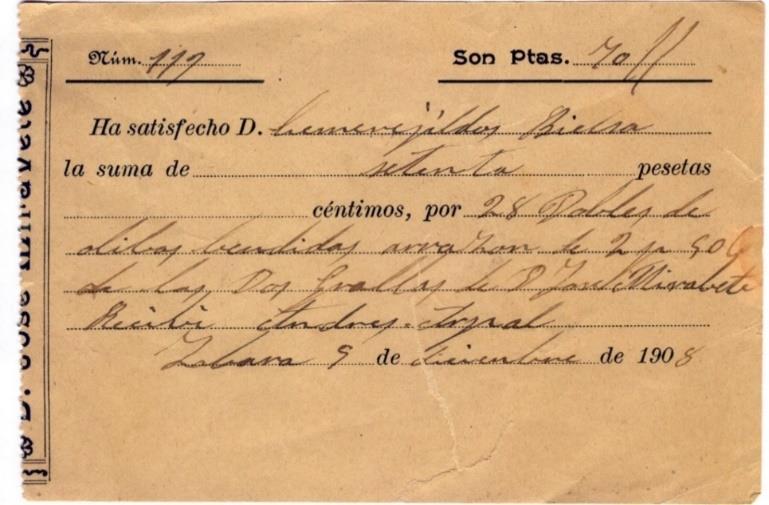 Núm. 119 Son Ptas. 70
Ha satisfecho D. Bielsa
la suma de setenta pesetas
céntimos, por 28 Dobles de
olibas bendidas arrazon de 2 p 50 C
de las Dos de D José Mirabete
Recibi Andres
5 de diciembre de 1908
D. José Miravete